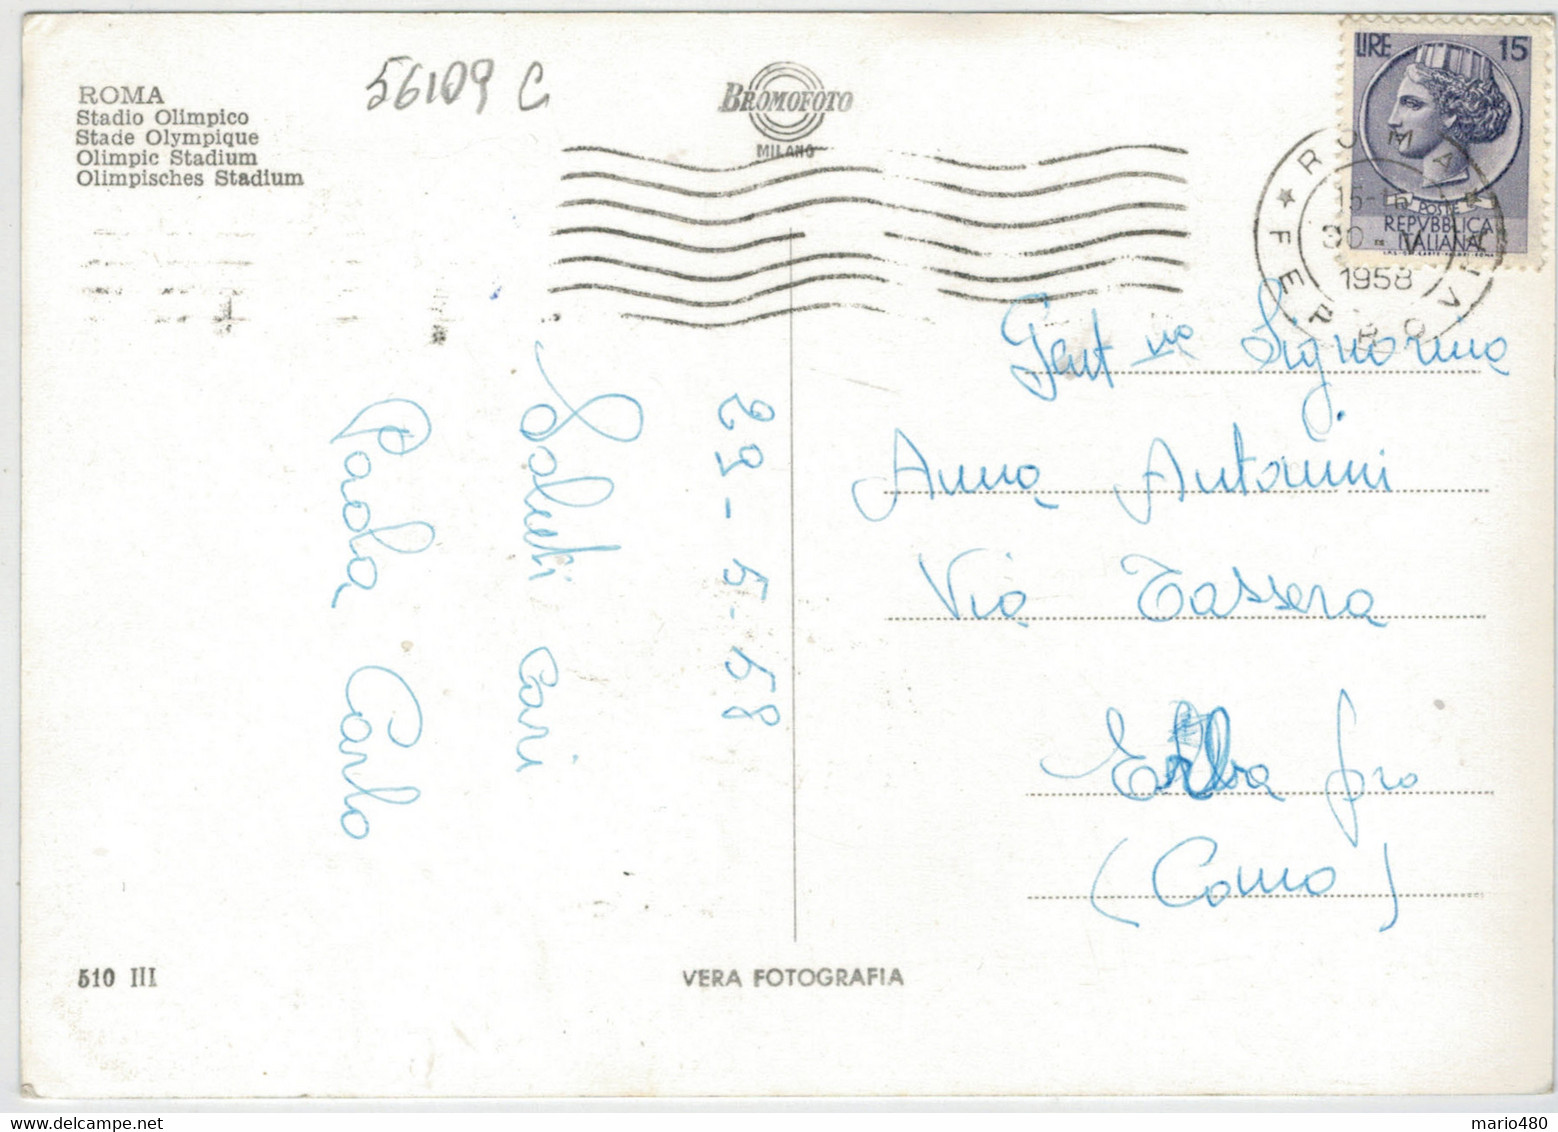 ROMA
Stadio Olimpico
Stade Olympique
Olimpic Stadium
Olimpisches Stadium
56109 C
BROMOFOTO
MILANO
LIRE 15
POSTE
REPVBBLICA
ITALIANA
ROMA
30-V
1958
FERROVIA
29-5-58
Saluti cari
Paola Carlo
Gent ma Signorina
Anna Antonini
Via Tassera
Erba pro
(Como)
510 III
VERA FOTOGRAFIA
mario480